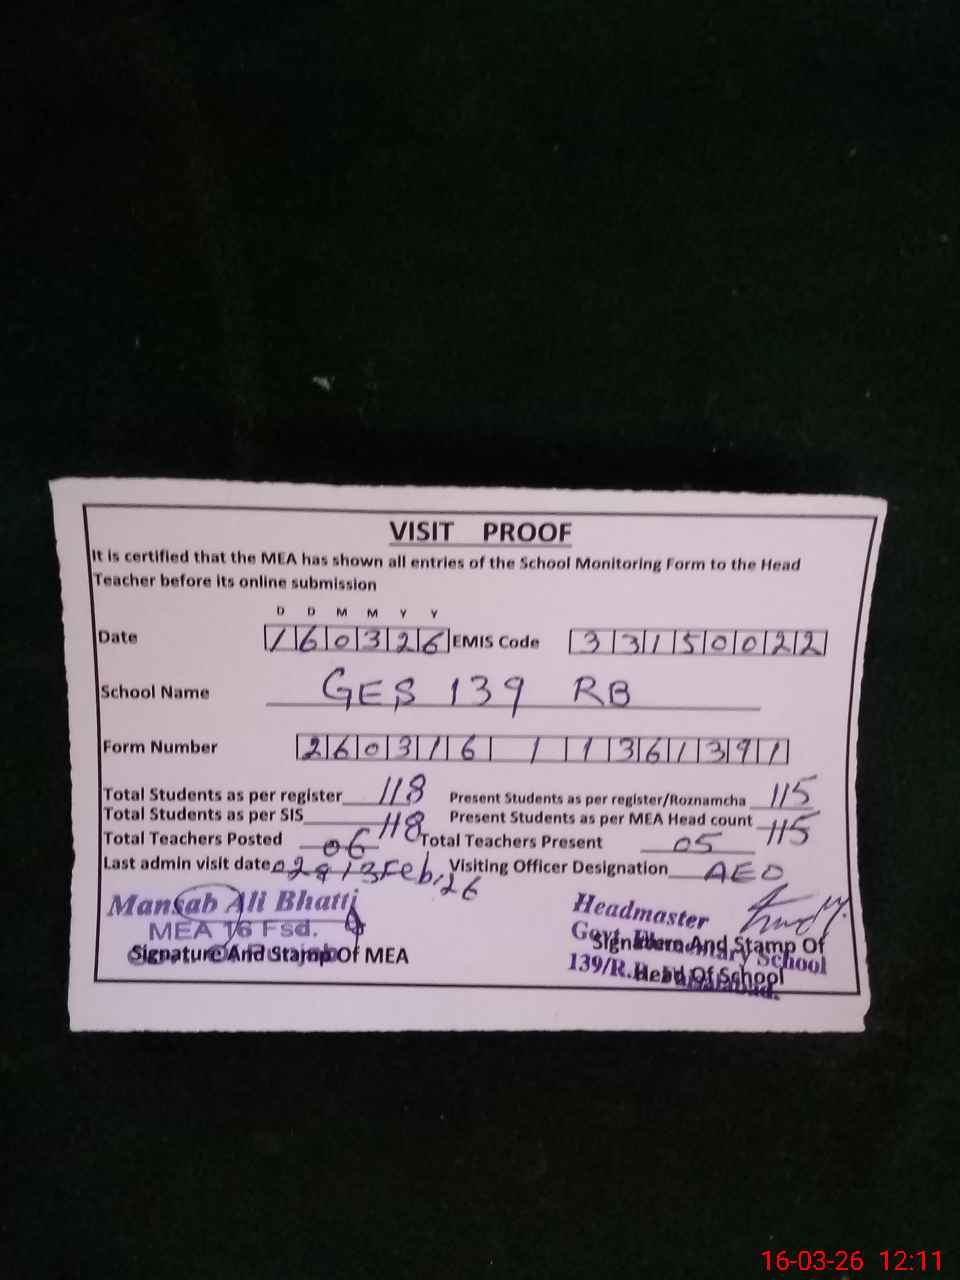 VISIT PROOF
It is certified that the MEA has shown all entries of the School Monitoring Form to the Head
Teacher before its online submission
D D M M Y Y
Date 160326 EMIS Code 33150022
School Name GES 139 RB
Form Number 260316 1 1361391
Total Students as per register 118 Present Students as per register/Roznamcha 115
Total Students as per SIS 118 Present Students as per MEA Head count 115
Total Teachers Posted 06 Total Teachers Present 05
Last admin visit date 13 Feb, 26 Visiting Officer Designation AEO
Mansab Ali Bhatti
MEA 16 Fsd.
Signature And Stamp Of MEA
Headmaster
Govt. Elementary School
Signature And Stamp Of
139/R.B. Faisalabad.
Head Of School
16-03-26 12:11